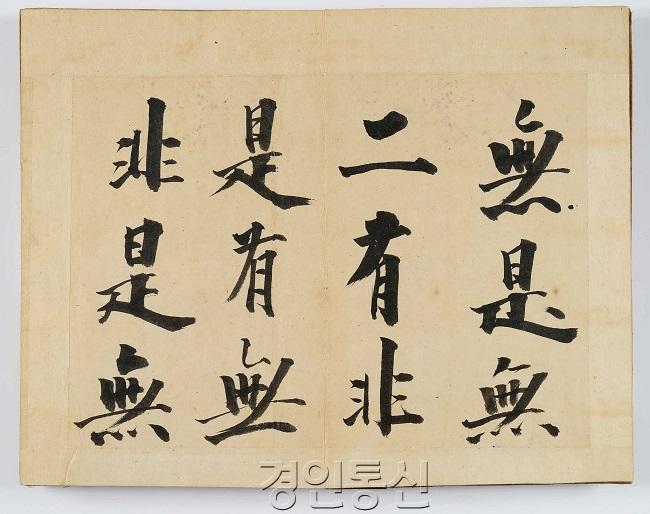 無是無
二有非
是有無
非是無
경인통신